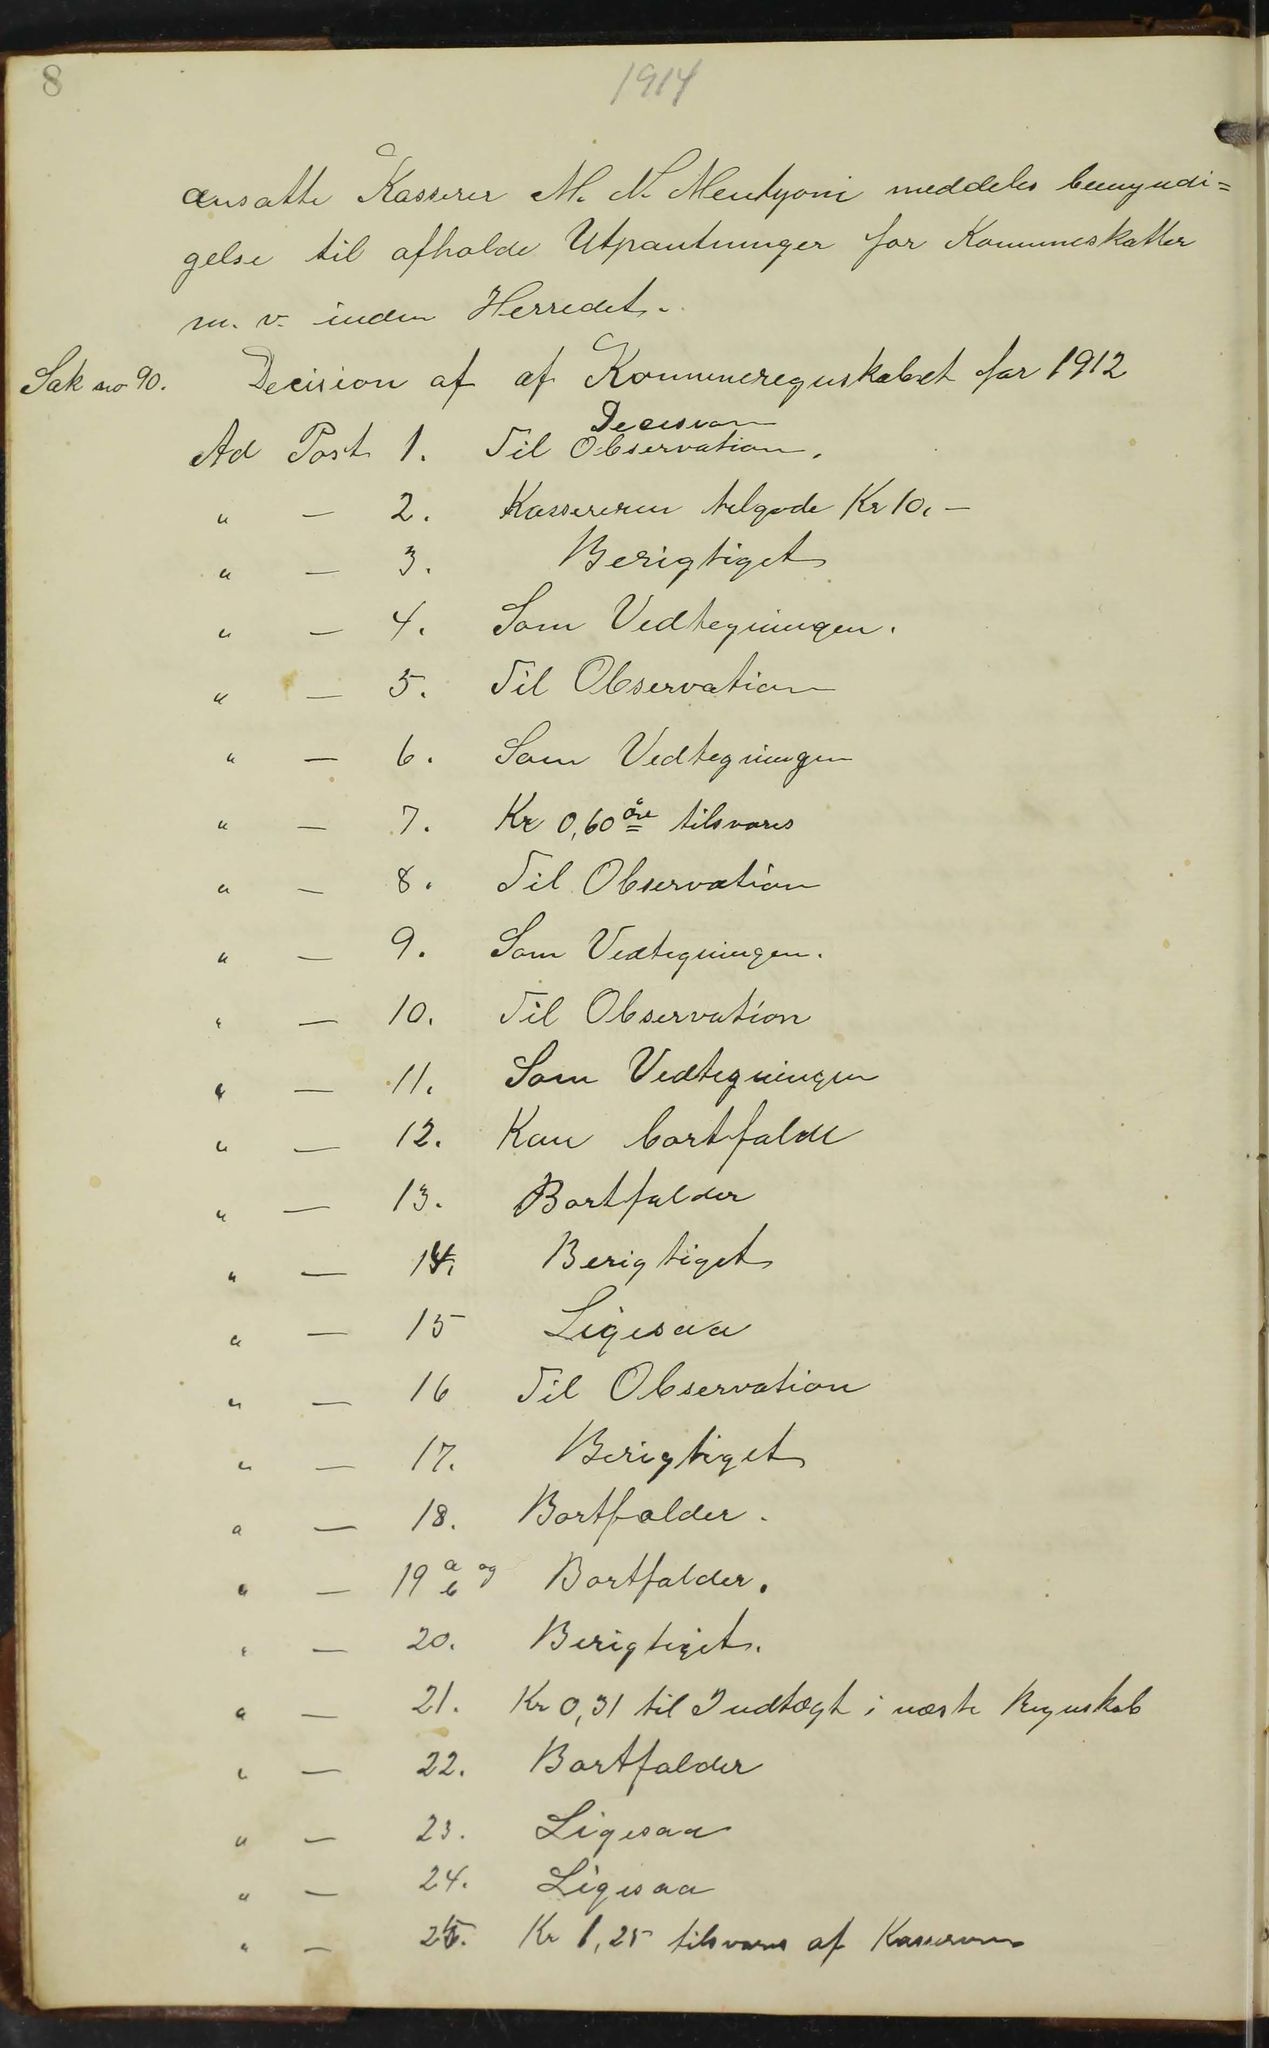 8
1914
ansatte Kasserer M. N. Mentyoni meddeles bemyndi=
gelse til afholde Utpantninger for Kommuneskatter
m. v. inden Herredet.
Sak no 90. Decision af af Kommuneregnskabet for 1912
Decision
Ad Post 1. Til Observation.
" — 2. Kassereren tilgode Kr 10,-
" — 3. Berigtiget
" — 4. Som Vedtegningen.
" — 5. Til Observation
" — 6. Som Vedtegningen
" — 7. Kr 0,60 øre tilsvares
" — 8. Til Observation
" — 9. Som Vedtegningen.
" — 10. Til Observation
" — 11. Som Vedtegningen
" — 12. Kan bortfalde
" — 13. Bortfalder
" — 14. Berigtiget
" — 15 Ligesaa
" — 16 Til Observation
" — 17. Berigtiget
" — 18. Bortfalder.
" — 19 a og b Bortfalder.
" — 20. Berigtiget.
" — 21. Kr 0,31 til Indtægt i næste Regnskab
" — 22. Bortfalder
" — 23. Ligesaa
" — 24. Ligesaa
" — 25. Kr 1,25 tilsvares af Kassereren